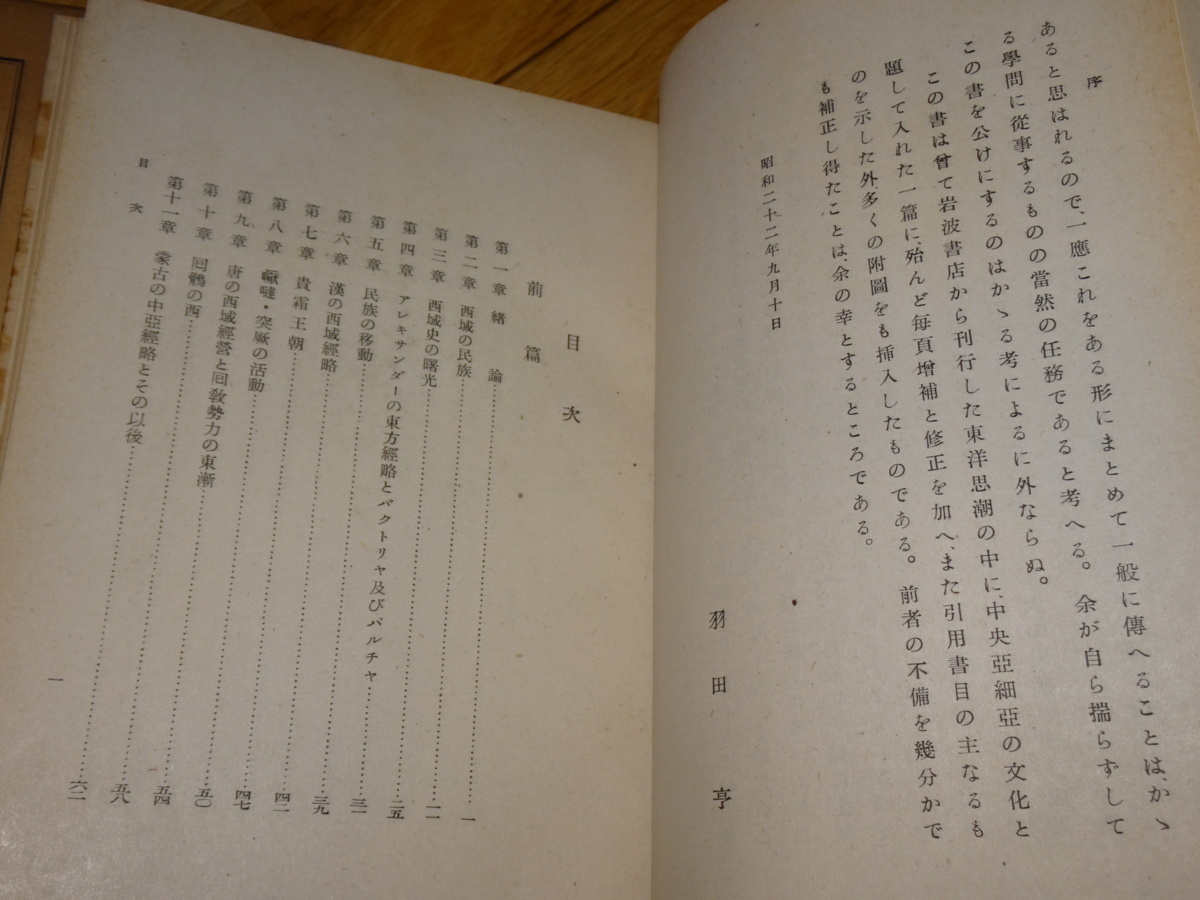 序
あると思はれるので、一應これをある形にまとめて一般に傳へることは、かゝ
る學問に從事するものの當然の任務であると考へる。余が自ら揣らずして
この書を公けにするのはかゝる考によるに外ならぬ。
この書は曾て岩波書店から刊行した東洋思潮の中に、中央亞細亞の文化と
題して入れた一篇に、殆んど每頁增補と修正を加へ、また引用書目の主なるも
のを示した外多くの附圖をも挿入したものである。前者の不備を幾分かで
も補正し得たことは、余の幸とするところである。
昭和二十二年九月十日
羽田亨
目次
前篇
第一章 緒論……一
第二章 西域の民族……一一
第三章 西域史の曙光……二五
第四章 アレキサンダーの東方經略とバクトリヤ及びパルチヤ……三一
第五章 民族の移動……三九
第六章 漢の西域經略……四二
第七章 貴霜王朝……四七
第八章 嚈噠・突厥の活動……五〇
第九章 唐の西域經營と回敎勢力の東漸……五四
第十章 回鶻の西……五八
第十一章 蒙古の中亞經略とその以後……六二
目次
一